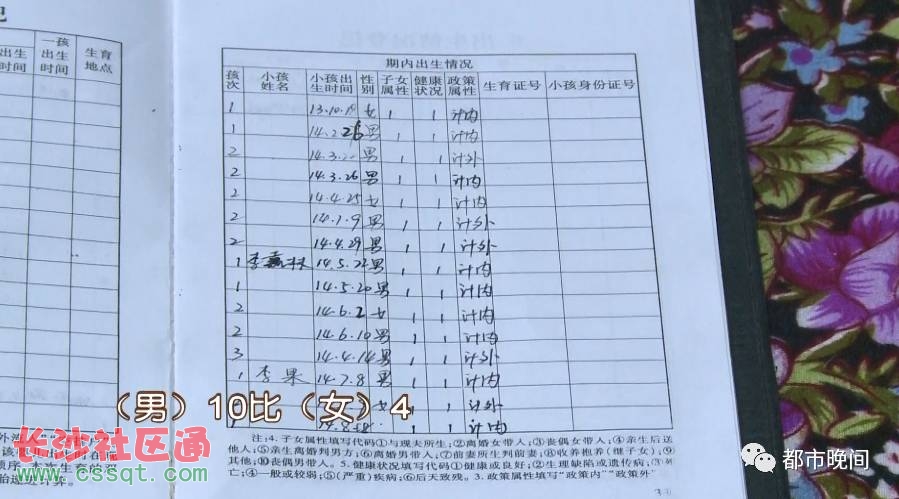 一孩
出生 出生 生育
时间 时间 地点
期内出生情况
孩次 小孩姓名 小孩出生时间 性别 子女属性 健康状况 政策属性 生育证号 小孩身份证号
1 13.10.19 女 1 1 计内
1 14.2.26 男 1 1 计内
2 14.3. 男 1 1 计外
2 14.3.26 男 1 1 计内
2 14.4.25 女 1 1 计内
2 14.1.9 男 1 1 计外
2 14.4.29 男 1 1 计外
1 李 林 14.5.22 男 1 1 计内
1 14.5.20 男 1 1 计内
2 14.6.2 女 1 1 计内
2 14.6.10 男 1 1 计内
3 14.4.14 男 1 1 计外
1 李果 14.7.8 男 1 1 计内
女 1 1 计外
1 1 1 计内
(男)10比(女)4
注:4.子女属性填写代码①与现夫所生;②离婚女带人;③丧偶女带人;④亲生后送
他人;⑤亲生离婚判男方;⑥离婚男带人;⑦前妻所生判前妻;⑧收养抱养(继子女);⑨
其他;⑩丧偶男带人。5.健康状况填写代码①健康或良好;②生理缺陷或遗传病;③死
亡;④一般或较弱;⑤(严重)疾病;⑥后天致残。3.政策属性填写“政策内”“政策外”
长沙社区通
www.cssqt.com
都市晚间